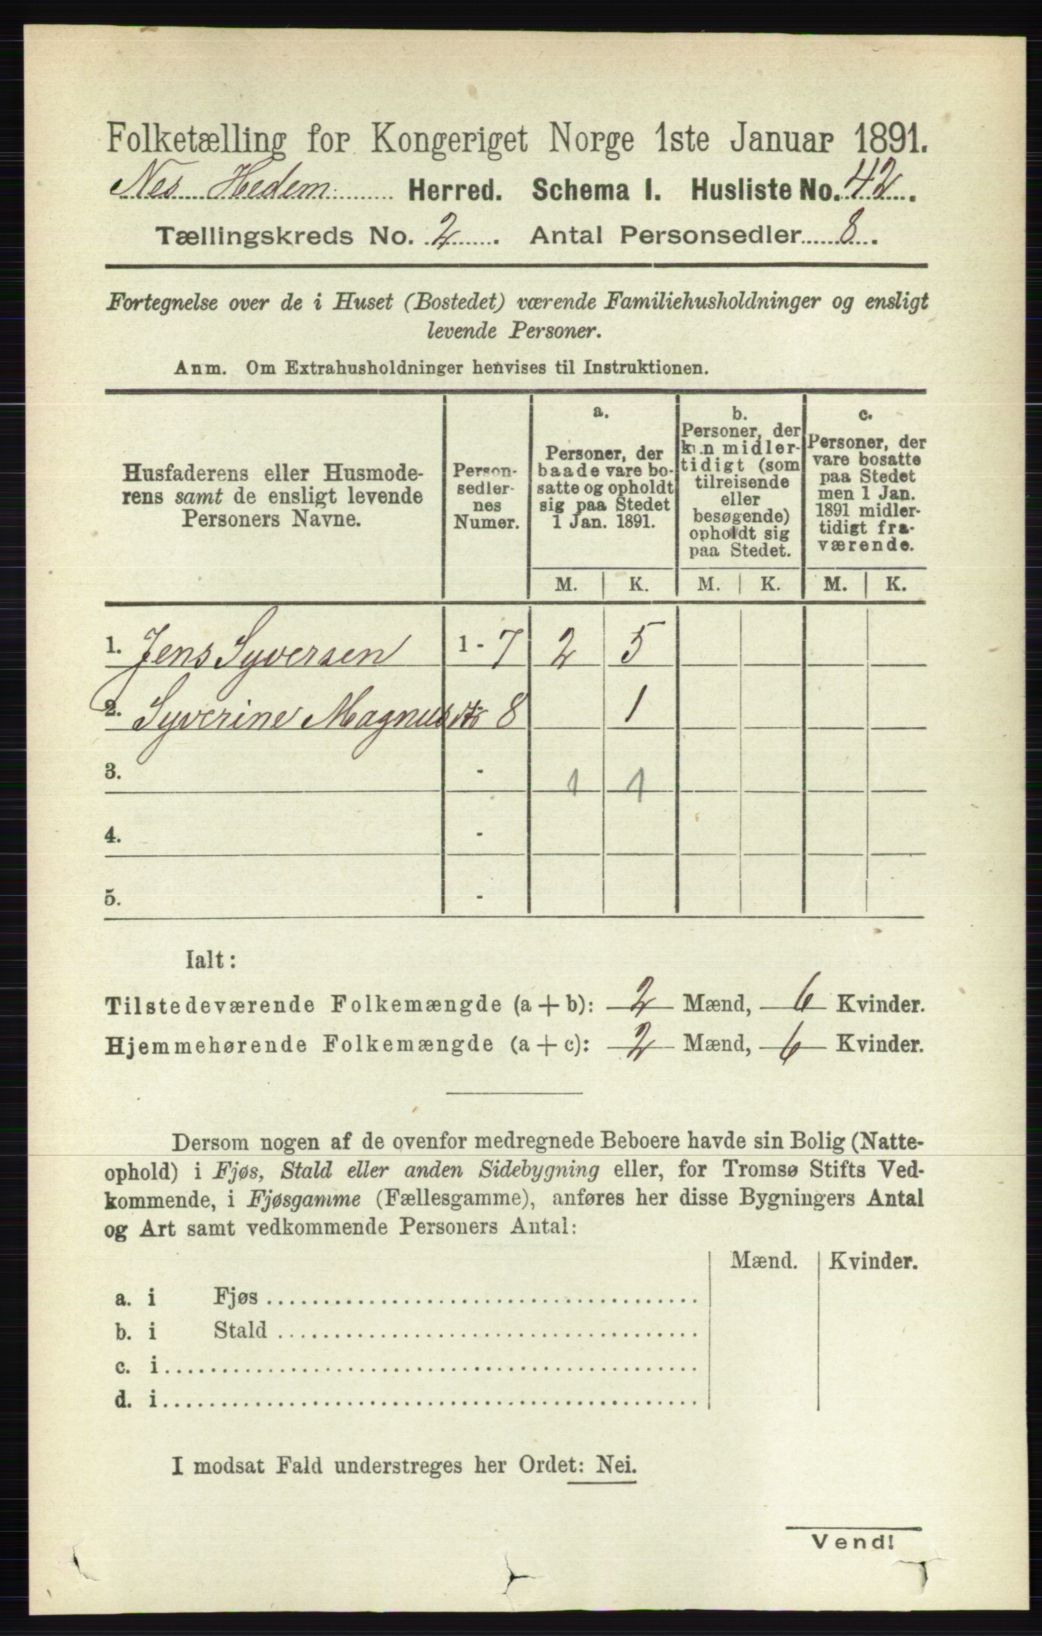 Folketælling for Kongeriget Norge 1ste Januar 1891.
Nes Hedem. Herred. Schema I. Husliste No. 42.
Tællingskreds No. 2. Antal Personsedler 8.
Fortegnelse over de i Huset (Bostedet) værende Familiehusholdninger og ensligt
levende Personer.
Anm. Om Extrahusholdninger henvises til Instruktionen.
Husfaderens eller Husmode-
rens samt de ensligt levende
Personers Navne.
Person-
sedler-
nes
Numer.
a.
Personer, der
baade vare bo-
satte og opholdt
sig paa Stedet
1 Jan. 1891.
b.
Personer, der
kun midler-
tidigt (som
tilreisende
eller
besøgende)
opholdt sig
paa Stedet.
c.
Personer, der
vare bosatte
paa Stedet
men 1 Jan.
1891 midler-
tidigt fra-
værende.
M. K. M. K. M. K.
1. Jens Syversen 1 - 7 2 5
2. Syverine Magnus 8 1
3. - 1 1
4. -
5. -
Ialt:
Tilstedeværende Folkemængde (a + b): 2 Mænd, 6 Kvinder.
Hjemmehørende Folkemængde (a + c): 2 Mænd, 6 Kvinder.
Dersom nogen af de ovenfor medregnede Beboere havde sin Bolig (Natte-
ophold) i Fjøs, Stald eller anden Sidebygning eller, for Tromsø Stifts Ved-
kommende, i Fjøsgamme (Fællesgamme), anføres her disse Bygningers Antal
og Art samt vedkommende Personers Antal:
Mænd. Kvinder.
a. i Fjøs
b. i Stald
c. i
d. i
I modsat Fald understreges her Ordet: Nei.
Vend!